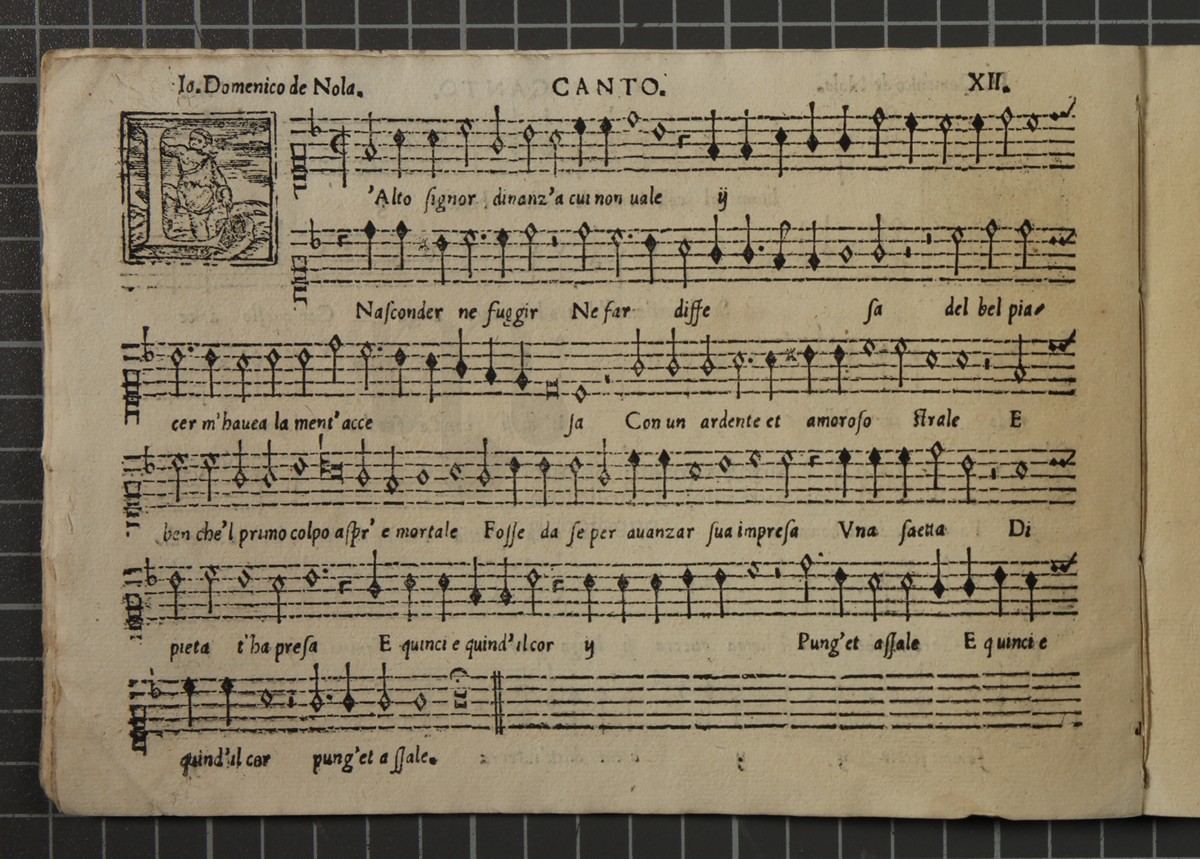 Io. Domenico de Nola. CANTO. XII.
L'Alto ſignor dinanz'a cui non uale ij
Naſconder ne fuggir Ne far diffe ſa del bel pia-
cer m'hauea la ment'acce ſa Con un ardente et amoroſo ſtrale E
ben che'l primo colpo aſpr' e mortale Foſſe da ſe per auanzar ſua impreſa Vna ſaetta Di
pieta t'ha preſa E quinci e quind'il cor ij Pung'et aſſale E quinci e
quind'il cor pung'et aſſale.